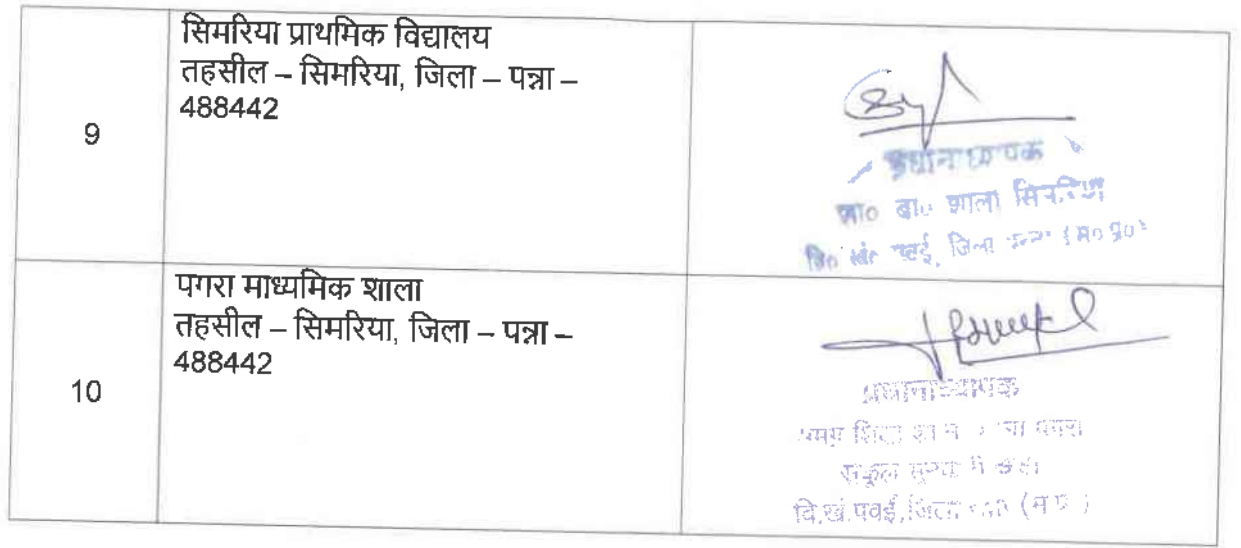 9
सिमरिया प्राथमिक विद्यालय
तहसील – सिमरिया, जिला – पन्ना –
488442
प्रधानाध्यापक
शाला सिमरिया
पवई, जिला पन्ना (म०प्र०)
10
पगरा माध्यमिक शाला
तहसील – सिमरिया, जिला – पन्ना –
488442
प्रधानाध्यापक
पगरा
वि.खं.पवई,जिला